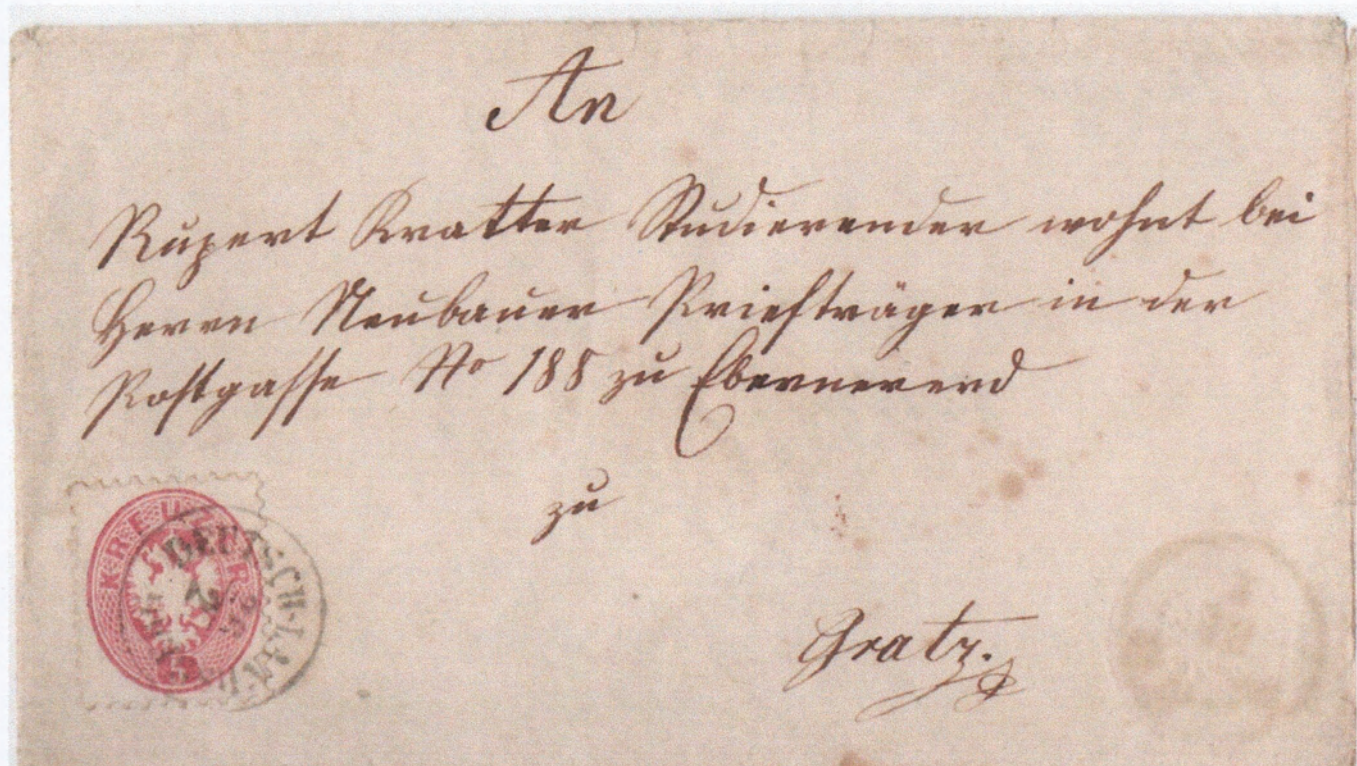 An
Rupert Kratter Studierender wohnt bei
Herrn Neubauer Briefträger in der
Postgasse No 188 zu ebener erd
zu
Gratz.
KREUZER
5
DEUTSCH-LANDSBERG